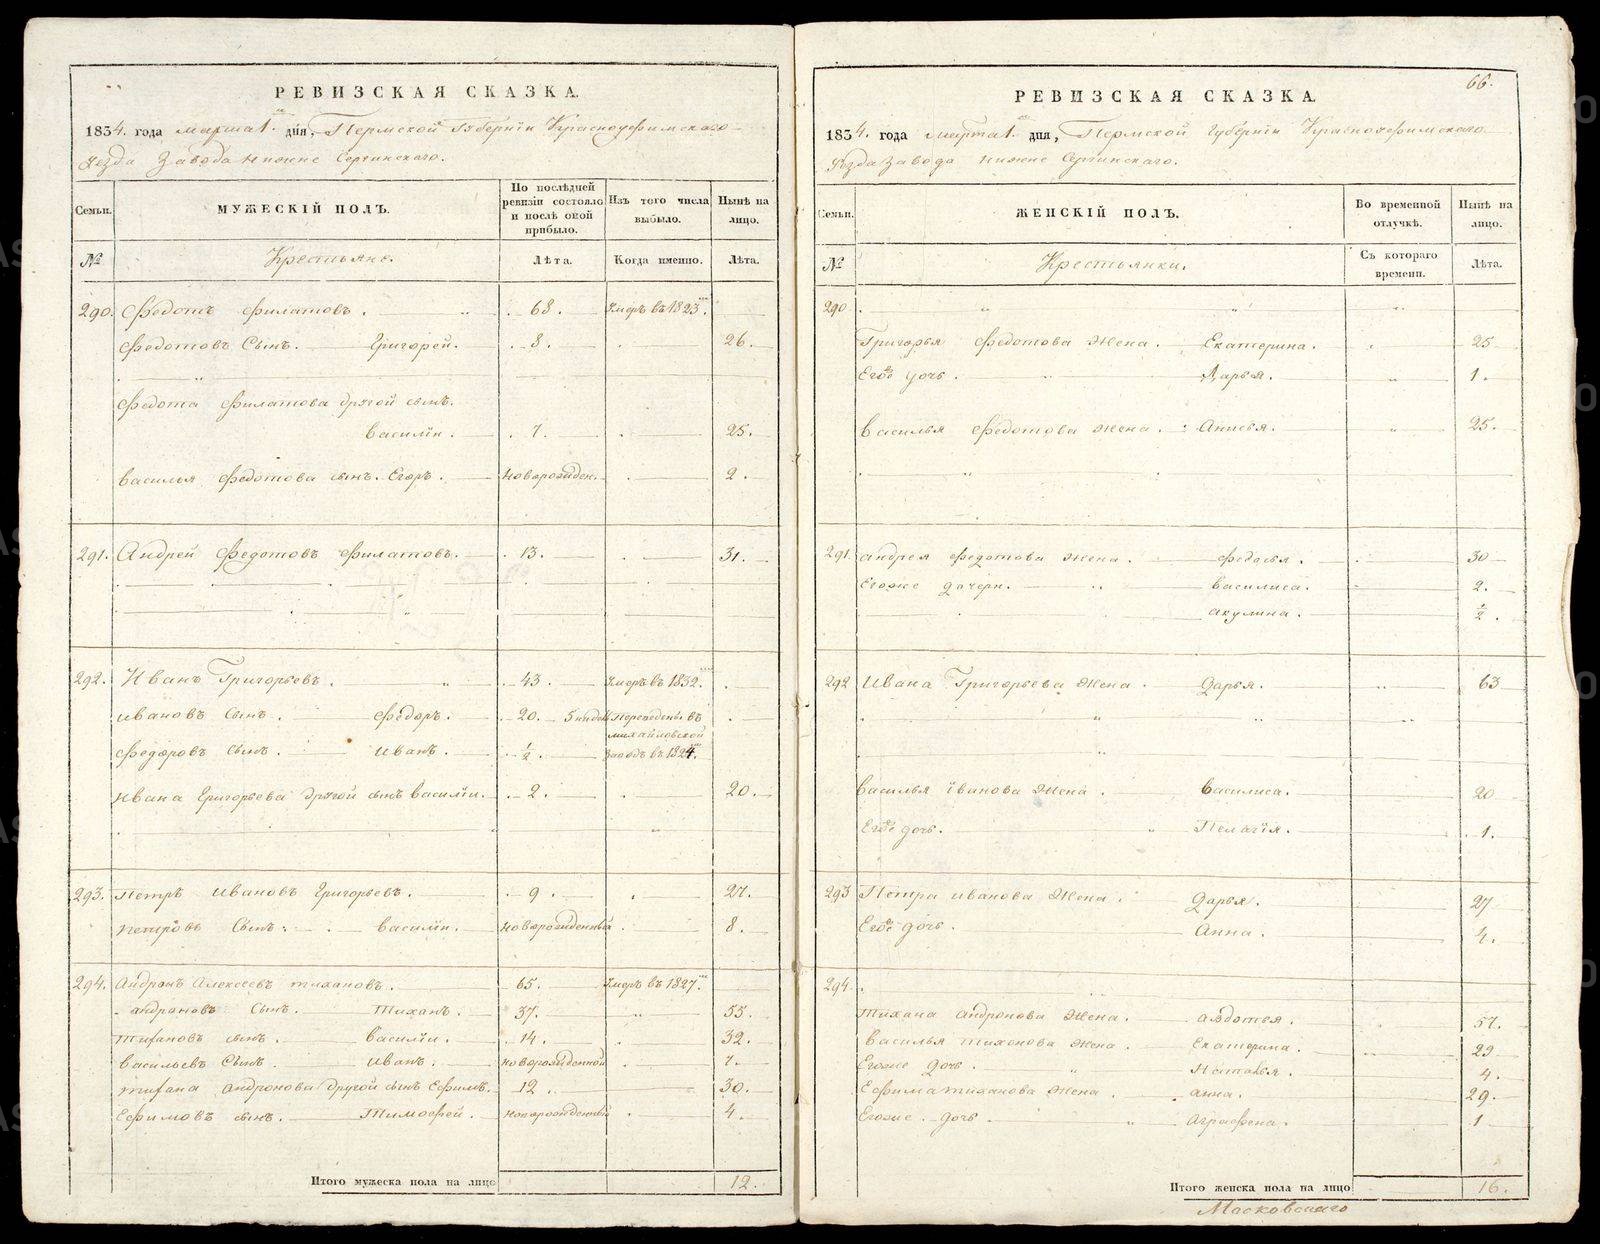 РЕВИЗСКАЯ СКАЗКА.
1834. года марта 1. дня, Пермской Губернїи Красноуфимскаго
уезда Завода Нижне Сергинскаго.
Семьи.
МУЖЕСКІЙ ПОЛЪ.
По послѣдней ревизіи состояло и послѣ оной прибыло.
Изъ того числа выбыло.
Нынѣ на лицо.
№
Крестьяне.
Лѣта.
Когда именно.
Лѣта.
290. Федотъ Филатовъ. 68. Умеръ въ 1823.
Федотовъ Сынъ. Григорей. 8. 26.
Федота Филатова другой сынъ.
Василїи. 7. 25.
Василья Федотова сынъ. Егоръ. новорожден. 2.
291. Андрей Федотовъ Филатовъ. 13. 31.
292. Иванъ Григорьевъ. 43. Умеръ въ 1832.
Ивановъ Сынъ. Федоръ. 20. Переведены въ
михайловской
Федоровъ Сынъ. Иванъ. ½ заводъ въ 1824.
Ивана Григорьева другой сынъ Василїи. 2. 20.
293. Петръ Ивановъ Григорьевъ. 9. 27.
Петровъ Сынъ. Василїи. новорожденный 8.
294. Андронъ Алексеевъ Тихановъ. 65. Умеръ въ 1827.
Андроновъ Сынъ. Тиханъ. 37. 55.
Тихановъ сынъ. Василїи. 14. 32.
Васильевъ Сынъ. Иванъ. новорожденной 7.
Тихана Андронова другой сынъ Ефимъ. 12. 30.
Ефимовъ сынъ. Тимофей. новорожденный 4.
Итого мужеска пола на лицо 19.
66.
РЕВИЗСКАЯ СКАЗКА.
1834. года марта 1. дня, Пермской Губернїи Красноуфимскаго
Уезда Завода Нижне Сергинскаго.
Семьи.
ЖЕНСКІЙ ПОЛЪ.
Во временной отлучкѣ.
Нынѣ на лицо.
№
Крестьянки.
Съ котораго времени.
Лѣта.
290
Григорья Федотова Жена. Екатерина. 25
Егоже дочь. Дарья. 1.
Василья Федотова жена. Анисья. 25.
291. Андрея Федотова жена. Федосья. 30
Егоже дочери. Василиса. 2.
Акулина. ½.
292 Ивана Григорьева жена. Дарья. 63
Василья Иванова Жена. Василиса. 20
Егоже дочь. Пелагїя. 1.
293 Петра Иванова Жена. Дарья. 27
Егоже дочь. Анна. 4.
294.
Тихана Андронова Жена. Авдотья. 57.
Василья Тихонова Жена. Екатерина. 29
Егоже дочь. Наталья. 4.
Ефима Тиханова Жена. Анна. 29.
Егоже дочь Аграфена. 1
Итого женска пола на лицо 16.